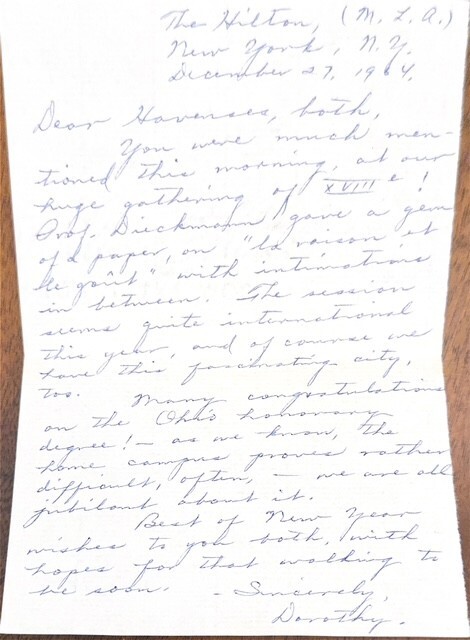 The Hilton, (M. L. A.)
New York, N.Y.
December 27, 1964.
Dear Havenses, both,
You were much men-
tioned this morning, at our
huge gathering of XVIIIe!
Prof. Dieckmann gave a gem
of a paper, on "la raison et
le goût" with intimations
in between. The session
seems quite international
this year, and of course we
have this fascinating city,
too.
Many congratulations
on the Ohio honorary
degree! – as we know, the
home campus proves rather
difficult, often, – we are all
jubilant about it.
Best of New Year
wishes to you both, with
hopes for that walking to
be soon. – Sincerely,
Dorothy.